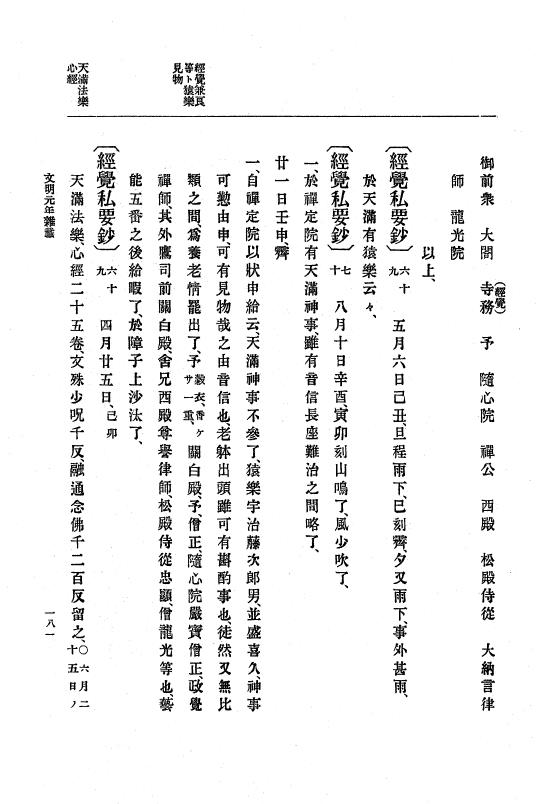 經覺兼良
等ト猿樂
見物
天滿法樂
心經
御前衆　大閤　寺務(經覺)　予　隨心院　禪公　西殿　松殿侍從　大納言律
師　龍光院
以上、
〔經覺私要鈔〕六十九　五月六日己丑、旦程雨下、巳刻霽、夕又雨下、事外甚雨、
於天滿有猿樂云々、
〔經覺私要鈔〕七十　八月十日辛酉、寅卯刻山鳴了、風少吹了、
一、於禪定院有天滿神事、雖有音信長座難治之間略了、
廿一日壬申、霽
一、自禪定院以狀申給云、天滿神事不參了、猿樂宇治藤次郎男、並盛喜久、神事
可懃由申、可有見物哉之由音信也、老躰出頭雖可有斟酌事也、徒然又無比
類之間、爲養老情罷出了、予穀衣、香ケサ一重、關白殿、予、僧正、隨心院嚴寶僧正、政覺
禪師、其外鷹司前關白殿、舍兄西殿尊譽律師、松殿侍從忠顯、僧龍光等也、藝
能五番之後給暇了、於障子上沙汰了、
〔經覺私要鈔〕六十九　四月廿五日、己卯
天滿法樂、心經二十五卷、文殊少呪千反、融通念佛千二百反留之、〇六月二十五日ノ
文明元年雜載
一八一